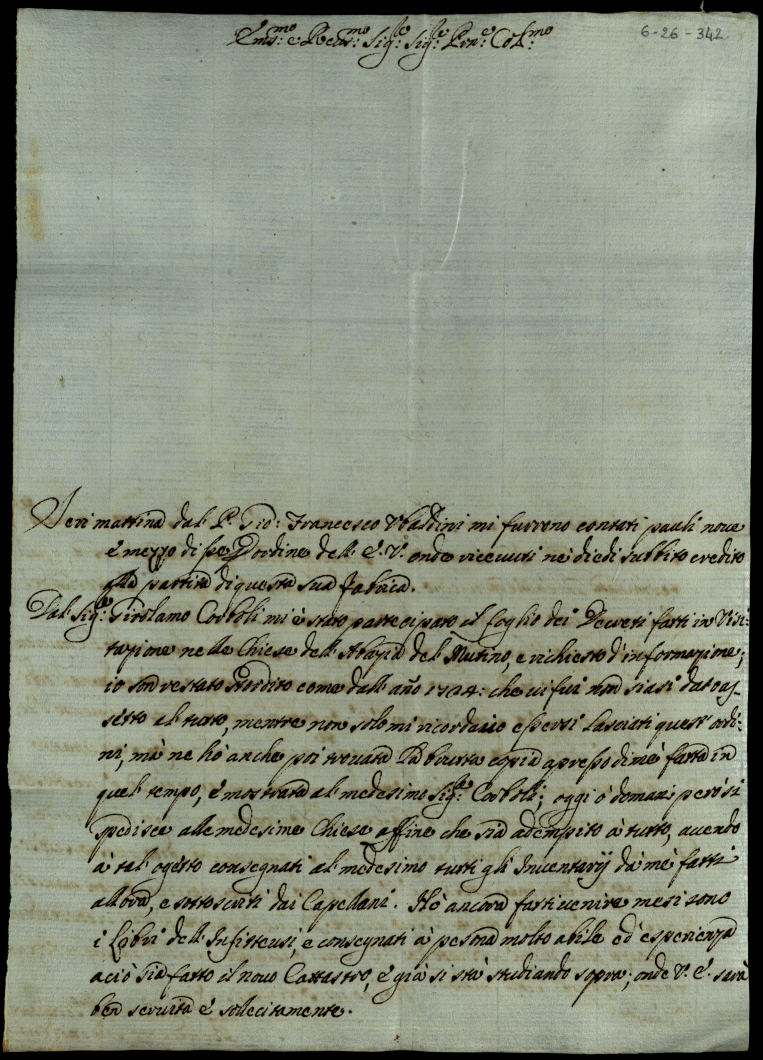 6-26-342
Em:mo e Rev:mo Sig:re Sig:re Pron:e Col:mo
Ieri mattina dal P. Gio: Francesco Ubaldini mi furrono contati pauli nove
e mezzo di d'ordine dell' E. V. onde ricevuti ne diedi subbito credito
alla partita di questa sua fabrica.
Dal Sig:re Girolamo Corboli mi è stato partecipato il foglio dei Decreti fatti in Visi:
tazione nelle Chiese dell' Abazia del Mutino, e richiesto d'informazione;
io son restato stordito come dall' año 1724: che vi fui non siasi dato as-
setto al tutto, mentre non solo mi ricordavo essersi lasciati quest' ordi:
ni, mà ne hò anche poi trovata la brutta copia apresso di mè fatta in
quel tempo, é mostrata al medesimo Sig:re Corboli; oggi ò domani però si
spedisce alle medesime Chiese affine che sia adempito à tutto, avendo
à tal ogetto consegnati al medesimo tutti gli Inventarij dà mè fatti
allora, e sottoscritti dai Capellani. Hò ancora fatti venire mesi sono
i Libri dell' Infiteusi, e consegnati à persona molto abile ed' esperienza
aciò sia fatto il novo Cattastro, é già si stà studiando sopra; onde V. E. sarà
ben servita é sollecitamente.